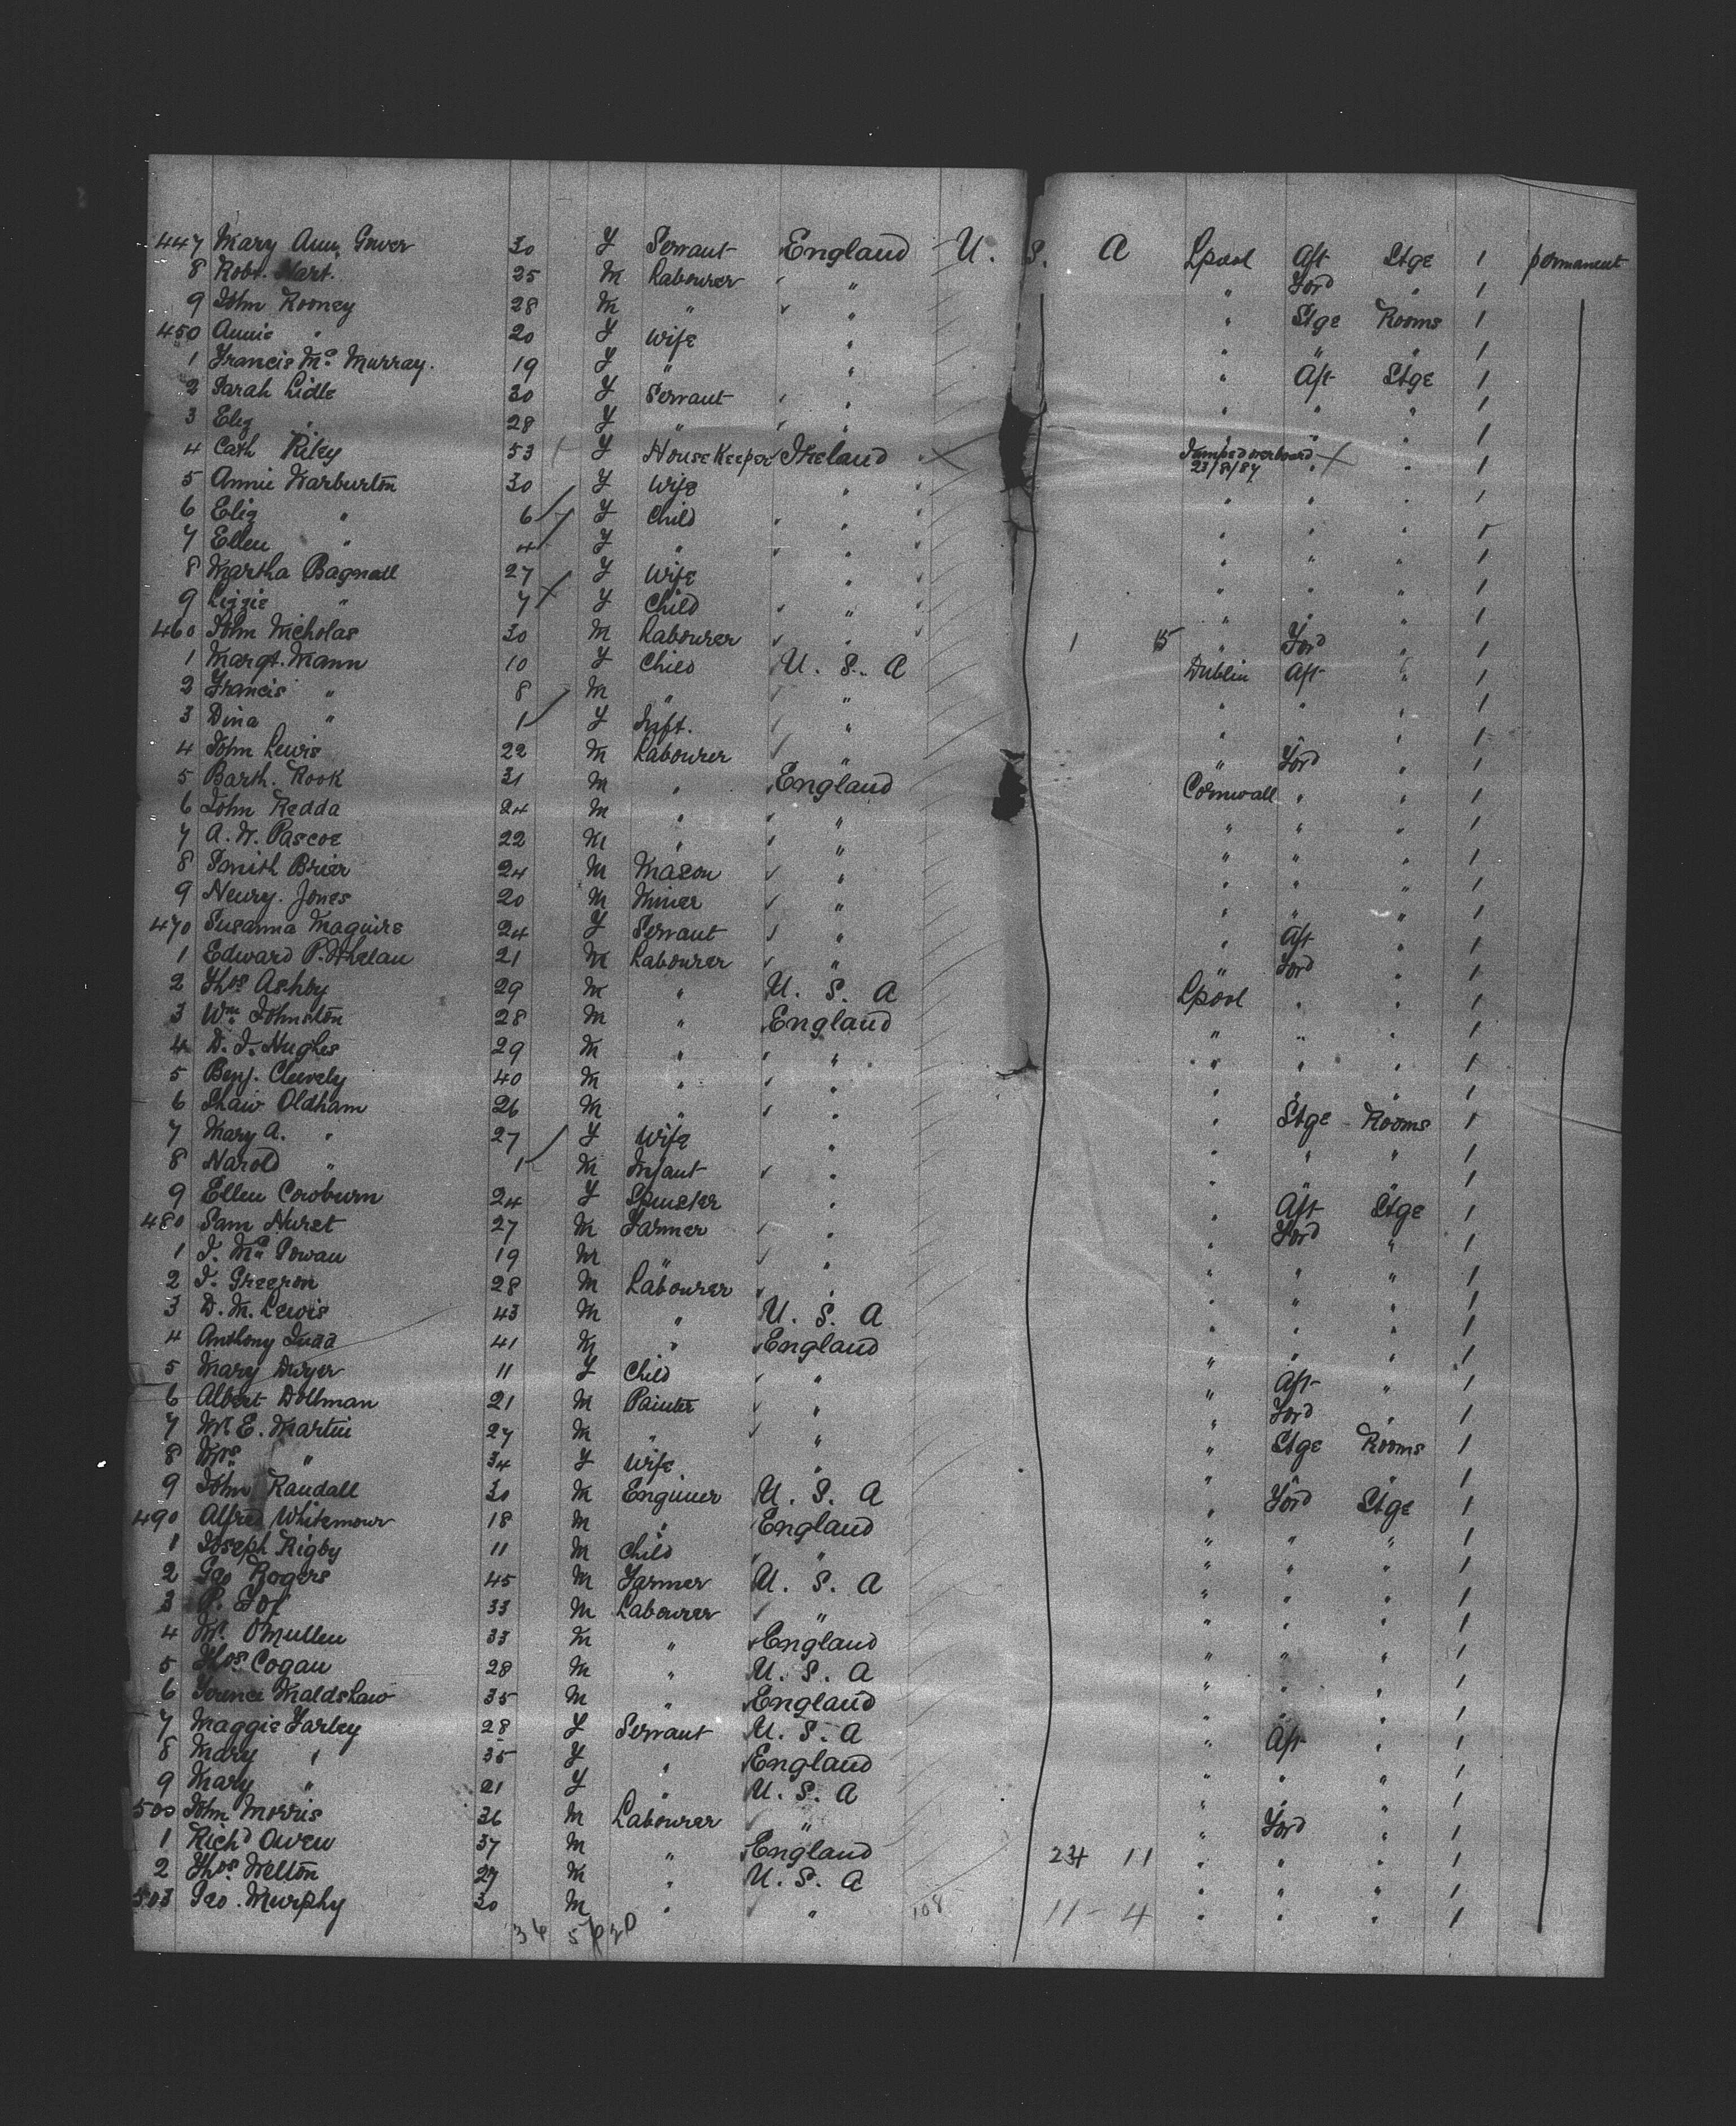 447 Mary Ann Gower 30 F Servant England U. S. A Lpool Aft Stge 1 permanent
8 Robt. Hart. 25 M Labourer " " Ford " 1
9 John Rooney 28 M " " " Stge Rooms 1
450 Annie " 20 F Wife " " " " 1
1 Francis Mc Murray. 19 F " " " Aft Stge 1
2 Sarah Lidle 30 F Servant " " " " 1
3 Eliz " 28 F " " " " " 1
4 Cath Riley 53 F House Keeper Ireland Jumped overboard 23/8/87 " " 1
5 Annie Warburton 30 F Wife " " " " 1
6 Eliz " 6 F Child " " " " 1
7 Ellen " 4 F " " " " " 1
8 Martha Bagnall 27 F Wife " " " " 1
9 Lizzie " 7 F Child " " " " 1
460 John Nicholas 30 M Labourer " 1 15 " Ford " 1
1 Margt. Mann 10 F Child U. S. A Dublin Aft " 1
2 Francis " 8 M " " " " " 1
3 Dina " 1 F Inft. " " " " 1
4 John Lewis 22 M Labourer " " Ford " 1
5 Barth. Rook 31 M " England Cornwall " " 1
6 John Redda 24 M " " " " " 1
7 A. W. Pascoe 22 M " " " " " 1
8 Smith Brier 24 M Mason " " " " 1
9 Henry. Jones 20 M Miner " " " " 1
470 Susanna Maguire 24 F Servant " " Aft " 1
1 Edward P. Whelan 21 M Labourer " " Ford " 1
2 Thos Ashby 29 M " U. S. A Lpool " " 1
3 Wm Johnston 28 M " England " " " 1
4 D. J. Hughes 29 M " " " " " 1
5 Benj. Cleevely 40 M " " " " " 1
6 Shaw Oldham 26 M " " " Stge Rooms 1
7 Mary A. " 27 F Wife " " " " 1
8 Harold " 1 M Infant " " " " 1
9 Ellen Cowburn 24 F Spinster " " Aft Stge 1
480 Sam Hurst 27 M Farmer " " Ford " 1
1 J. Mc Gowan 19 M " " " " " 1
2 J. Greeron 28 M Labourer " " " " 1
3 D. M. Lewis 43 M " U. S. A " " " 1
4 Anthony Judd 41 M " England " " " 1
5 Mary Dwyer 11 F Child " " Aft " 1
6 Albert Dollman 21 M Painter " " Ford " 1
7 W. E. Martin 27 M " " " Stge Rooms 1
8 Mrs " 34 F Wife " " " " 1
9 John Randall 30 M Engineer U. S. A " Ford Stge 1
490 Alfred Whitemour 18 M " England " " " 1
1 Joseph Rigby 11 M Child " " " " 1
2 Geo Rogers 45 M Farmer U. S. A " " " 1
3 P. Foy 33 M Labourer " " " " 1
4 M. O'Mullen 33 M " England " " " 1
5 Thos Cogan 28 M " U. S. A " " " 1
6 Maldshaw 35 M " England " " " 1
7 Maggie Farley 28 F Servant U. S. A " Aft " 1
8 Mary " 35 F " England " " " 1
9 Mary " 21 F " U. S. A " " " 1
500 John Morris 36 M Labourer " " Ford " 1
1 Richd Owen 37 M " England 24 11 " " " 1
2 Thos Welton 27 M " U. S. A " " " 1
503 Geo. Murphy 30 M " " 108 11 - 4 " " " 1